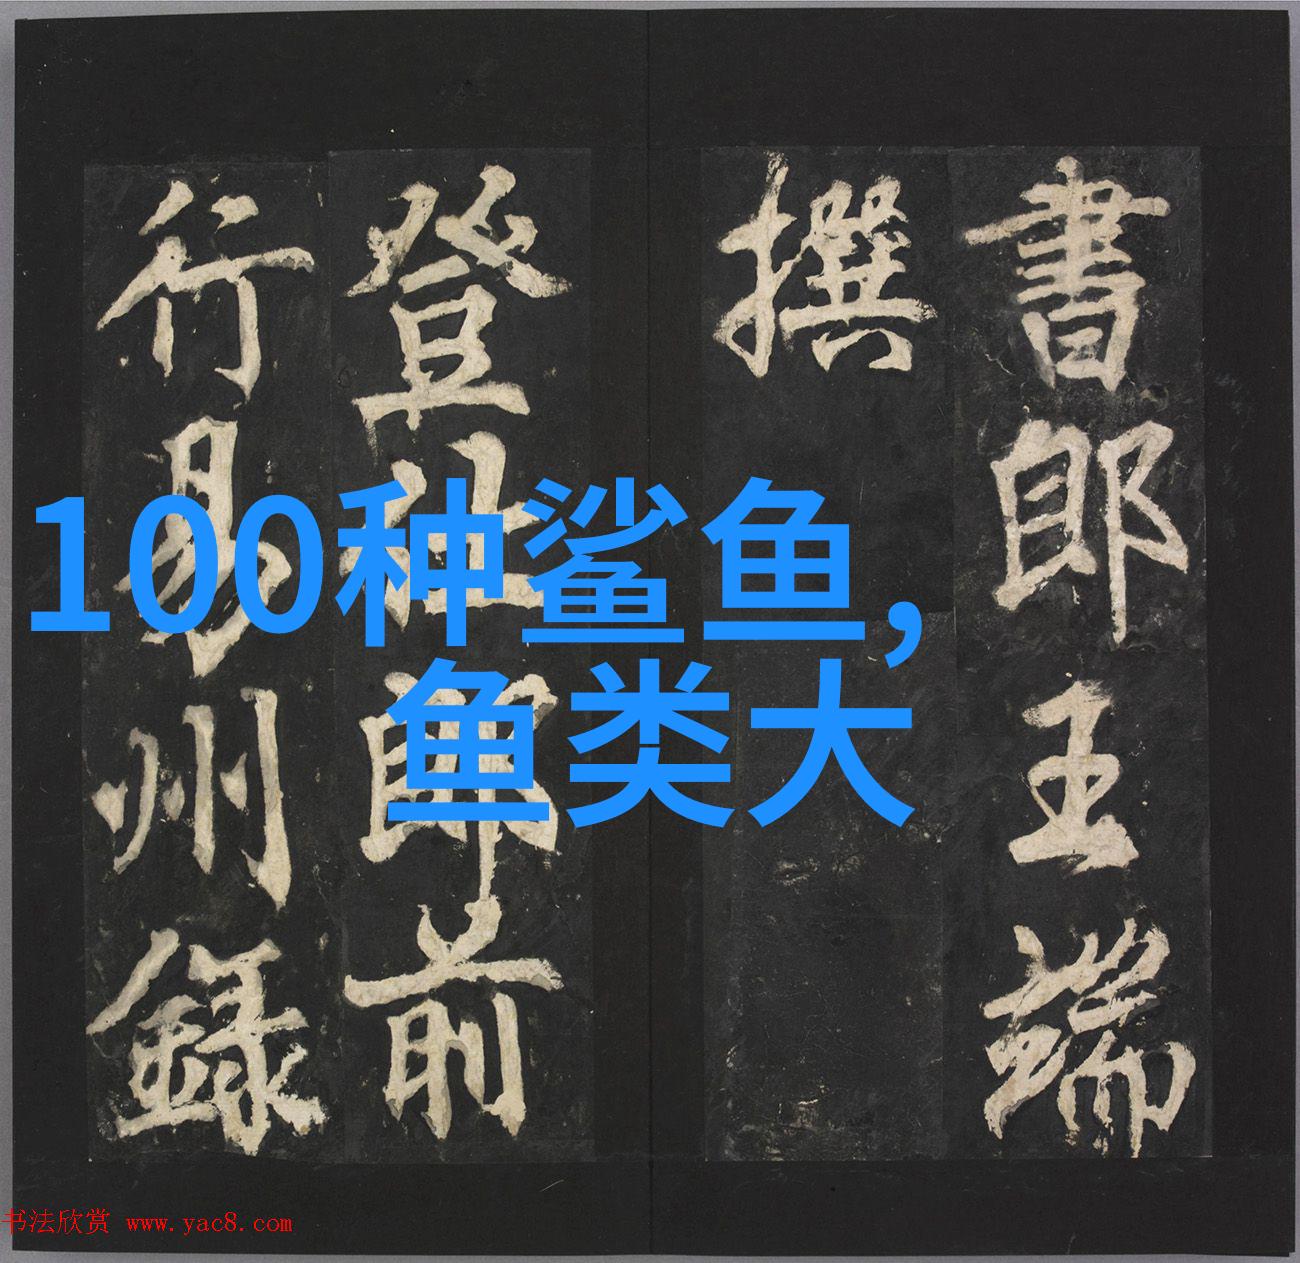 書郎王端
撰
登仕郎前
行易州録
100种鲨鱼,
鱼类大
书法欣赏 www.yac8.com